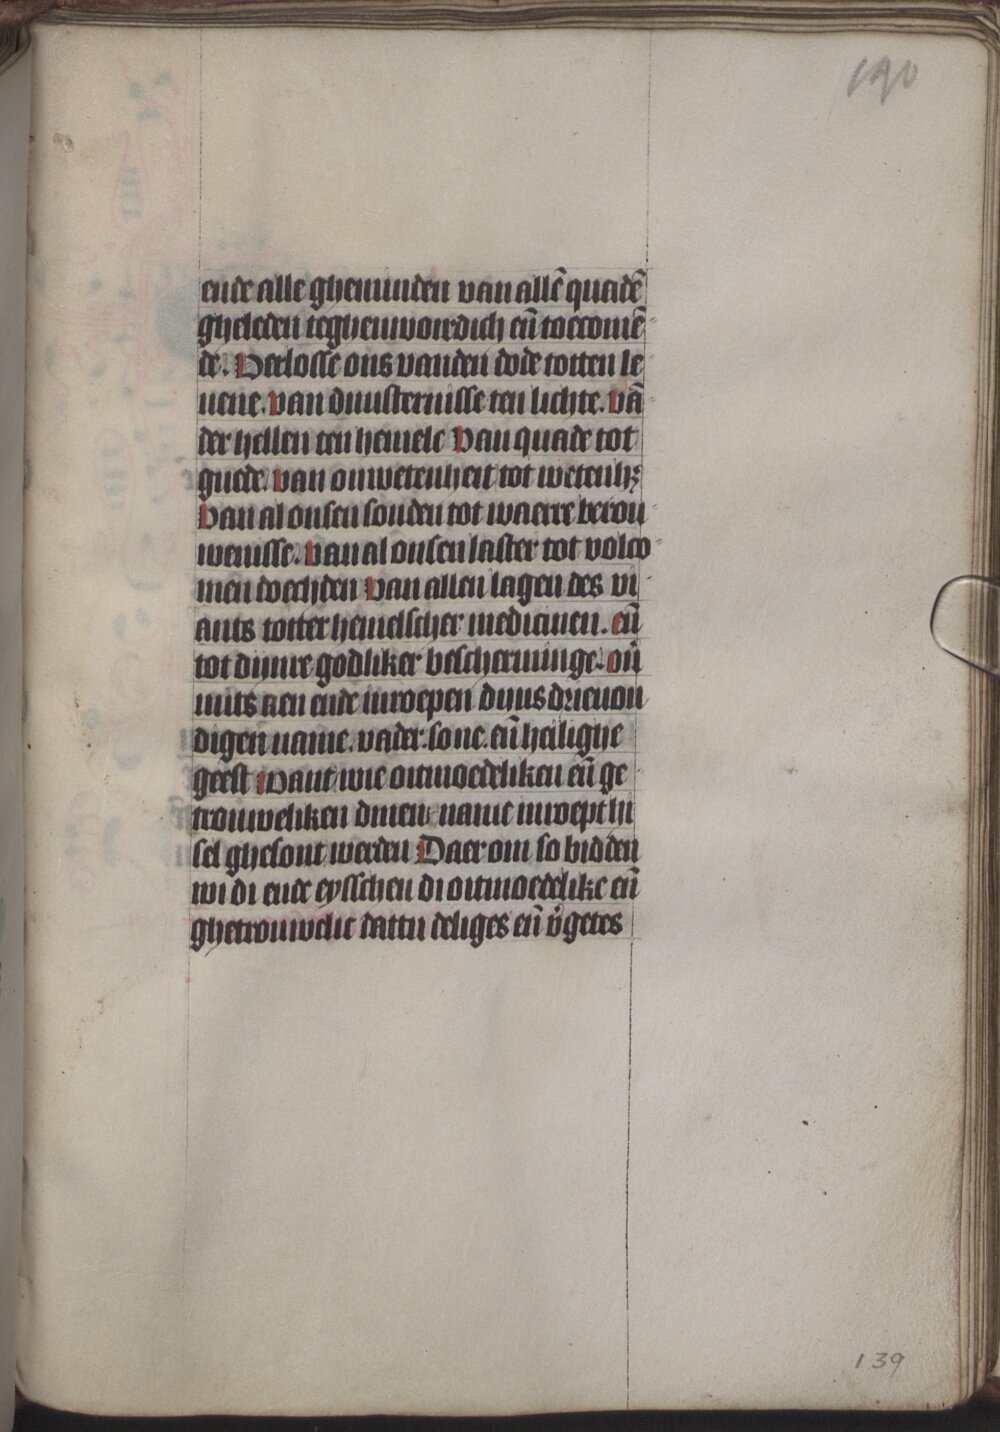 190
ende alle ghemunden van allē quadē
gheleden teghenwordich eñ toecomē
de. Verlosse ons vanden dode totten le
uene. van duusternisse ten lichte. vā
der hellen ten hemele Van quade tot
guede. van onwetenheit tot wetenhꝫ
Van al onsen sonden tot waerre berou
wenisse. van al onsen laster tot volco
men doechden Van allen lagen des vi
ants totter hemelscher medicinen. eñ
tot dijnre godliker bescherminge.
mits een ende inroepen dijns drieuou
digen name. vader. sone. eñ heilighe
geest Want wie oitmoedeliken eñ ge
trouweliken dinen name inroept hi
sel ghesont werden Daer om so bidden
wi di ende eysschen di oitmoedelike eñ
ghetrouwelic dattu deliges eñ v̓getes
139